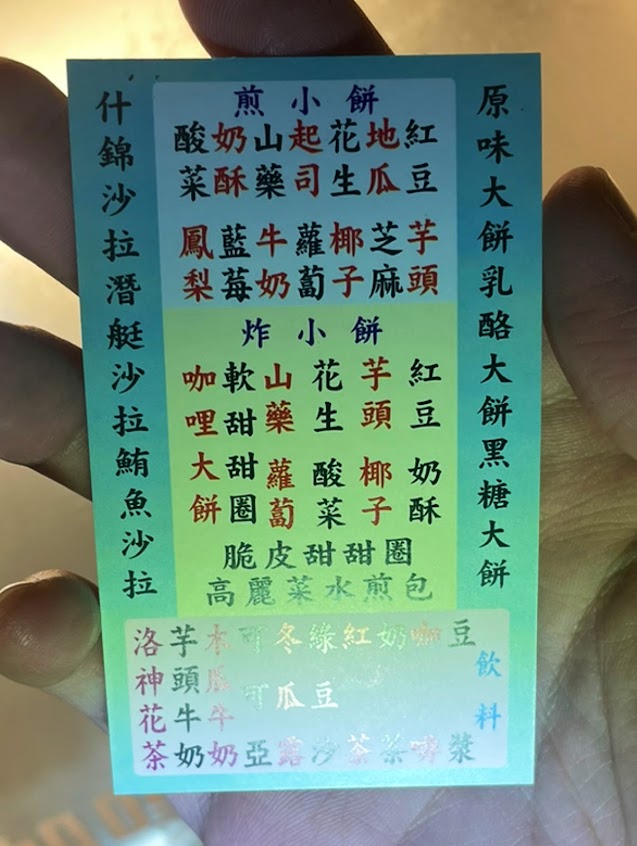 原味大餅乳酪大餅黑糖大餅
煎小餅
紅豆
地瓜
花生
起司
山藥
奶酥
酸菜
芋頭
芝麻
椰子
蘿蔔
牛奶
藍莓
鳳梨
炸小餅
紅豆
奶酥
芋頭
椰子
花生
酸菜
山藥
蘿蔔
軟甜甜圈
咖哩大餅
脆皮甜甜圈
高麗菜水煎包
什錦沙拉潛艇沙拉鮪魚沙拉
飲料
豆漿
咖啡
奶茶
紅茶
綠豆沙
冬瓜露
可可亞
木瓜牛奶
芋頭牛奶
洛神花茶